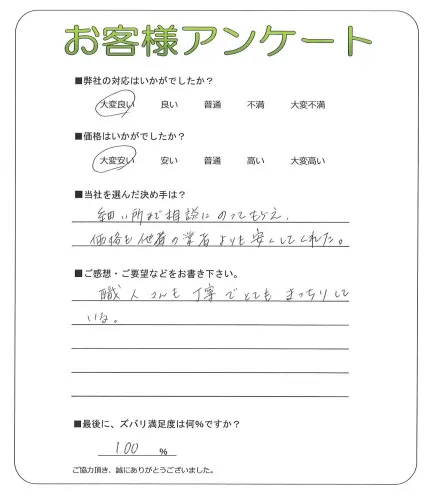 お客様アンケート
■弊社の対応はいかがでしたか？
大変良い 良い 普通 不満 大変不満
■価格はいかがでしたか？
大変安い 安い 普通 高い 大変高い
■当社を選んだ決め手は？
細い所まで相談にのってもらえ、
価格も他の業者よりも安くしてくれた。
■ご感想・ご要望などをお書き下さい。
職人さんも丁寧でとても きっちりして
いる。
■最後に、ズバリ満足度は何％ですか？
100 ％
ご協力頂き、誠にありがとうございました。